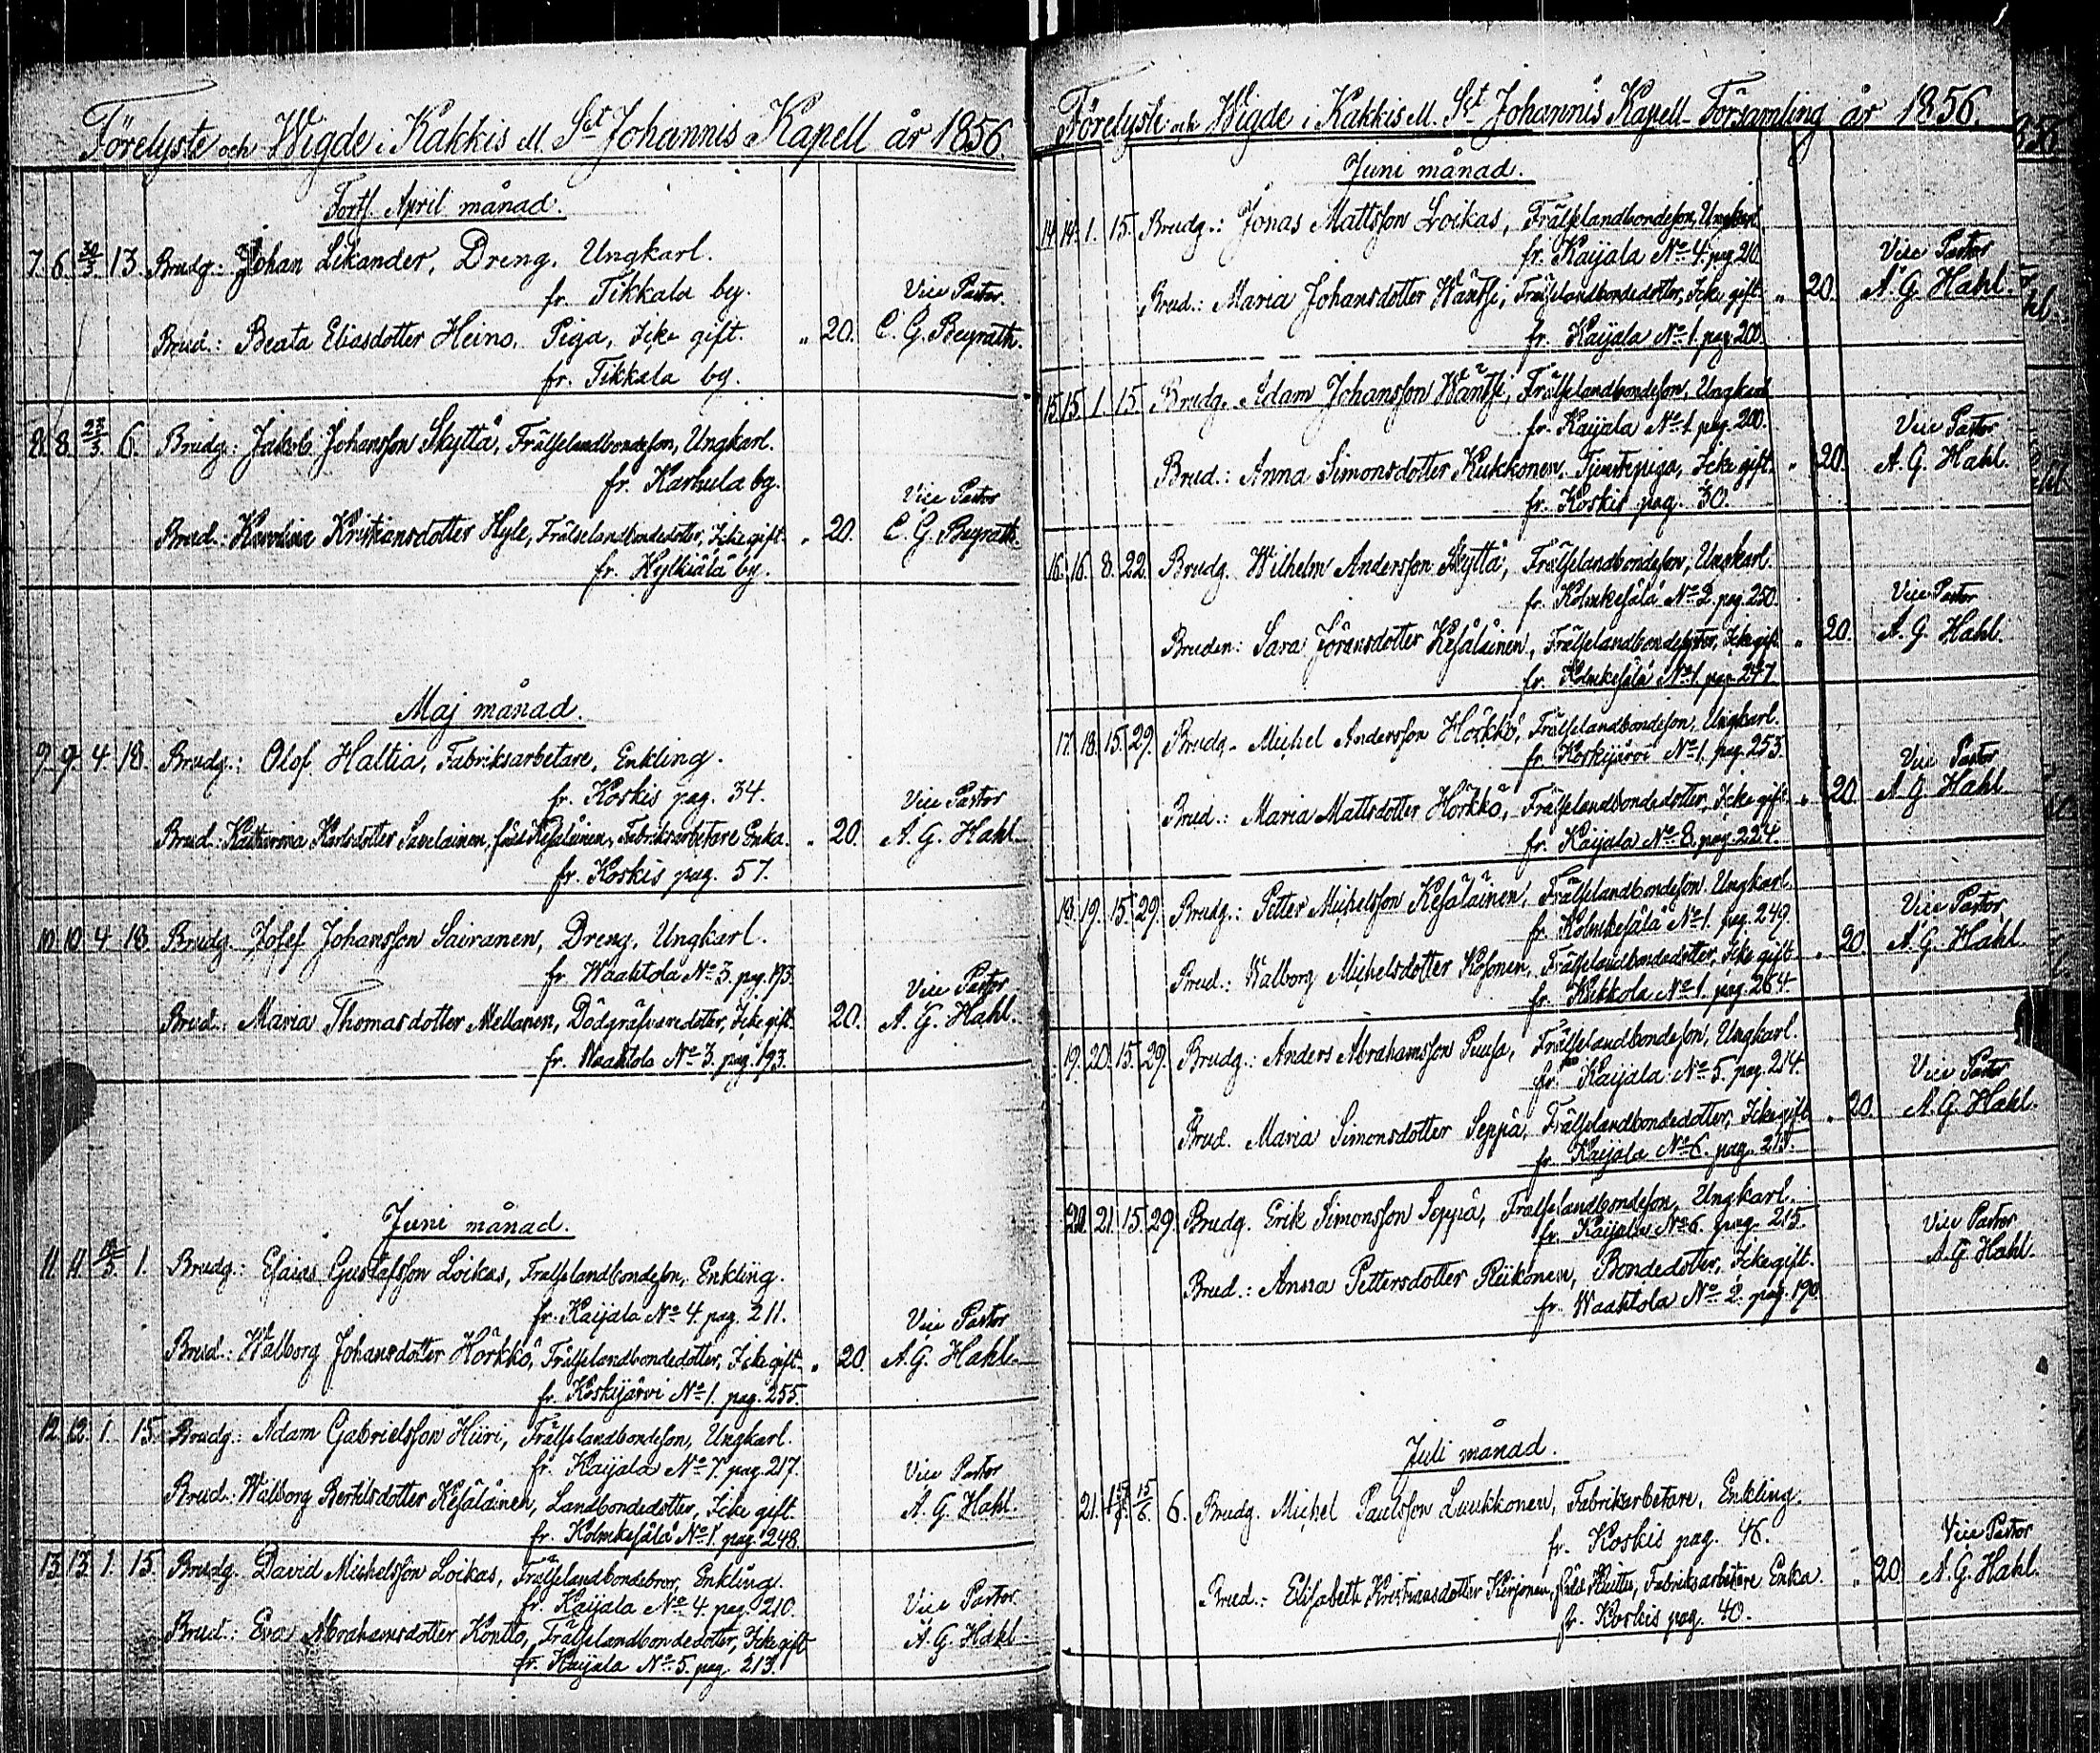 Förelyste och Wigde i Kakkis el. Sct Johannis Kapell år 1856.
Forts. April månad.
7. 6. 30/3 13. Brudg: Johan Likander, Dreng, Ungkarl.
fr. Tikkala by.
Vice Pastor
Brud.: Beata Eliasdotter Heino, Piga, Icke gift. „ 20. C. G. Beyrath.
fr. Tikkala by.
8. 8. 23/3 6. Brudg: Jakob Johansson Skyttä, Frälselandbondeson, Ungkarl.
fr. Karhula by.
Vice Pastor
Brud: Karolina Kristiansdotter Hyle, Frälselandbondedotter, Icke gift. „ 20. C. G. Beyrath.
fr. Hylkiälä by.
Maj månad.
9. 9. 4. 18. Brudg.: Olof Haltia, Fabriksarbetare, Enkling.
fr. Koskis pag. 34.
Vice Pastor
Brud: Katharina Karlsdotter Savelainen, född Kesäläinen, Fabriksarbetare Enka. „ 20. A. G. Hahl
fr. Koskis pag. 57.
10. 10. 4. 18. Brudg. Josef Johansson Sairanen, Dreng, Ungkarl.
fr. Waahtola No 3. pag. 193.
Vice Pastor
Brud. Maria Thomasdotter Mellanen, Dödgräfvaredotter, Icke gift. 20. A. G. Hahl.
fr. Waahtola No 3. pag. 193.
Juni månad.
11. 11. /5. 1. Brudg.: Esaias Gustafsson Loikas, Frälselandbondeson, Enkling.
fr. Kaijala No 4. pag. 211.
Vice Pastor
Brud.: Walborg Johansdotter Hörkkö, Frälselandbondedotter, Icke gift. „ 20. A. G. Hahl.
fr. Koskijärvi No 1. pag. 255.
12. 12. 1. 15. Brudg.: Adam Gabrielsson Hiiri, Frälselandbondeson, Ungkarl.
fr. Kaijala No 7. pag. 217.
Vice Pastor
Brud.: Walborg Bertilsdotter Kesäläinen, Landbondedotter, Icke gift. A. G. Hahl.
fr. Kolmkesälä No 1. pag. 248.
13. 13. 1. 15. Brudg. David Michelsson Loikas, Frälselandbondebror, Enkling.
fr. Kaijala No 4. pag. 210.
Vice Pastor
Brud.: Eva Abrahamsdotter Kontto, Frälselandbondedotter, Icke gift A. G. Hahl
fr. Kaijala No 5. pag. 213.
Förelyste och Wigde i Kakkis el. Sct Johannis Kapell-Församling år 1856.
Juni månad.
14. 14. 1. 15. Brudg.: Jonas Mattsson Loikas, Frälselandbondeson, Ungkarl.
fr. Kaijala No 4. pag. 210.
Vice Pastor
Brud.: Maria Johansdotter Wäntsi, Frälselandbondedotter, Icke gift. „ 20. A. G. Hahl.
fr. Kaijala No 1. pag. 200.
15. 15. 1. 15. Brudg. Adam Johansson Wäntsi, Frälselandbondeson, Ungkarl
fr. Kaijala No 1. pag. 200.
Vice Pastor
Brud.: Anna Simonsdotter Kukkonen, Tjenstepiga, Icke gift. „ 20. A. G. Hahl.
fr. Koskis pag. 30.
16. 16. 8. 22. Brudg. Wilhelm Andersson Skyttä, Frälselandbondeson, Ungkarl.
fr. Kolmkesälä No 2. pag. 250.
Vice Pastor
Bruden: Sara Jöransdotter Kesäläinen, Icke gift. „ 20. A. G. Hahl.
fr. Kolmkesälä No 1. pag. 247.
17. 18. 15. 29. Brudg. Michel Andersson Hörkkö, Frälselandbondeson, Ungkarl.
fr. Koskijärvi No 1. pag. 253.
Vice Pastor
Brud.: Maria Mattsdotter Hörkkö, Frälselandbondedotter, Icke gift. „ 20. A. G. Hahl.
fr. Kaijala No 8. pag. 224.
18. 19. 15. 29. Brudg.: Petter Michelsson Kesäläinen, Frälselandbondeson, Ungkarl.
fr. Kolmkesälä No 1. pag. 249.
Vice Pastor
Brud.: Walborg Michelsdotter Kosonen, Frälselandbondedotter, Icke gift. „ 20. A. G. Hahl.
fr. Kukkola No 1. pag. 264.
19. 20. 15. 29. Brudg.: Anders Abrahamsson Puusa, Frälselandbondeson, Ungkarl.
fr. Kaijala No 5. pag. 214.
Vice Pastor
Brud. Maria Simonsdotter Seppä, Frälselandbondedotter, Icke gift. „ 20. A. G. Hahl.
fr. Kaijala No 6. pag. 215.
20. 21. 15. 29. Brudg. Erik Simonsson Seppä, Frälselandbondeson, Ungkarl.
fr. Kaijala No 6. pag. 215.
Vice Pastor
A. G. Hahl.
Brud.: Anna Pettersdotter Reikonen, Bondedotter, Icke gift.
fr. Waahtola No 2. pag. 190.
Juli månad.
21. 15/6. 6. Brudg. Michel Paulsson Luukkonen, Fabriksarbetare, Enkling.
fr. Koskis pag. 46.
Vice Pastor
Brud.: Elisabeth Kristiansdotter Kirjonen, född Fabriksarbetare Enka. „ 20. A. G. Hahl.
fr. Koskis pag. 40.